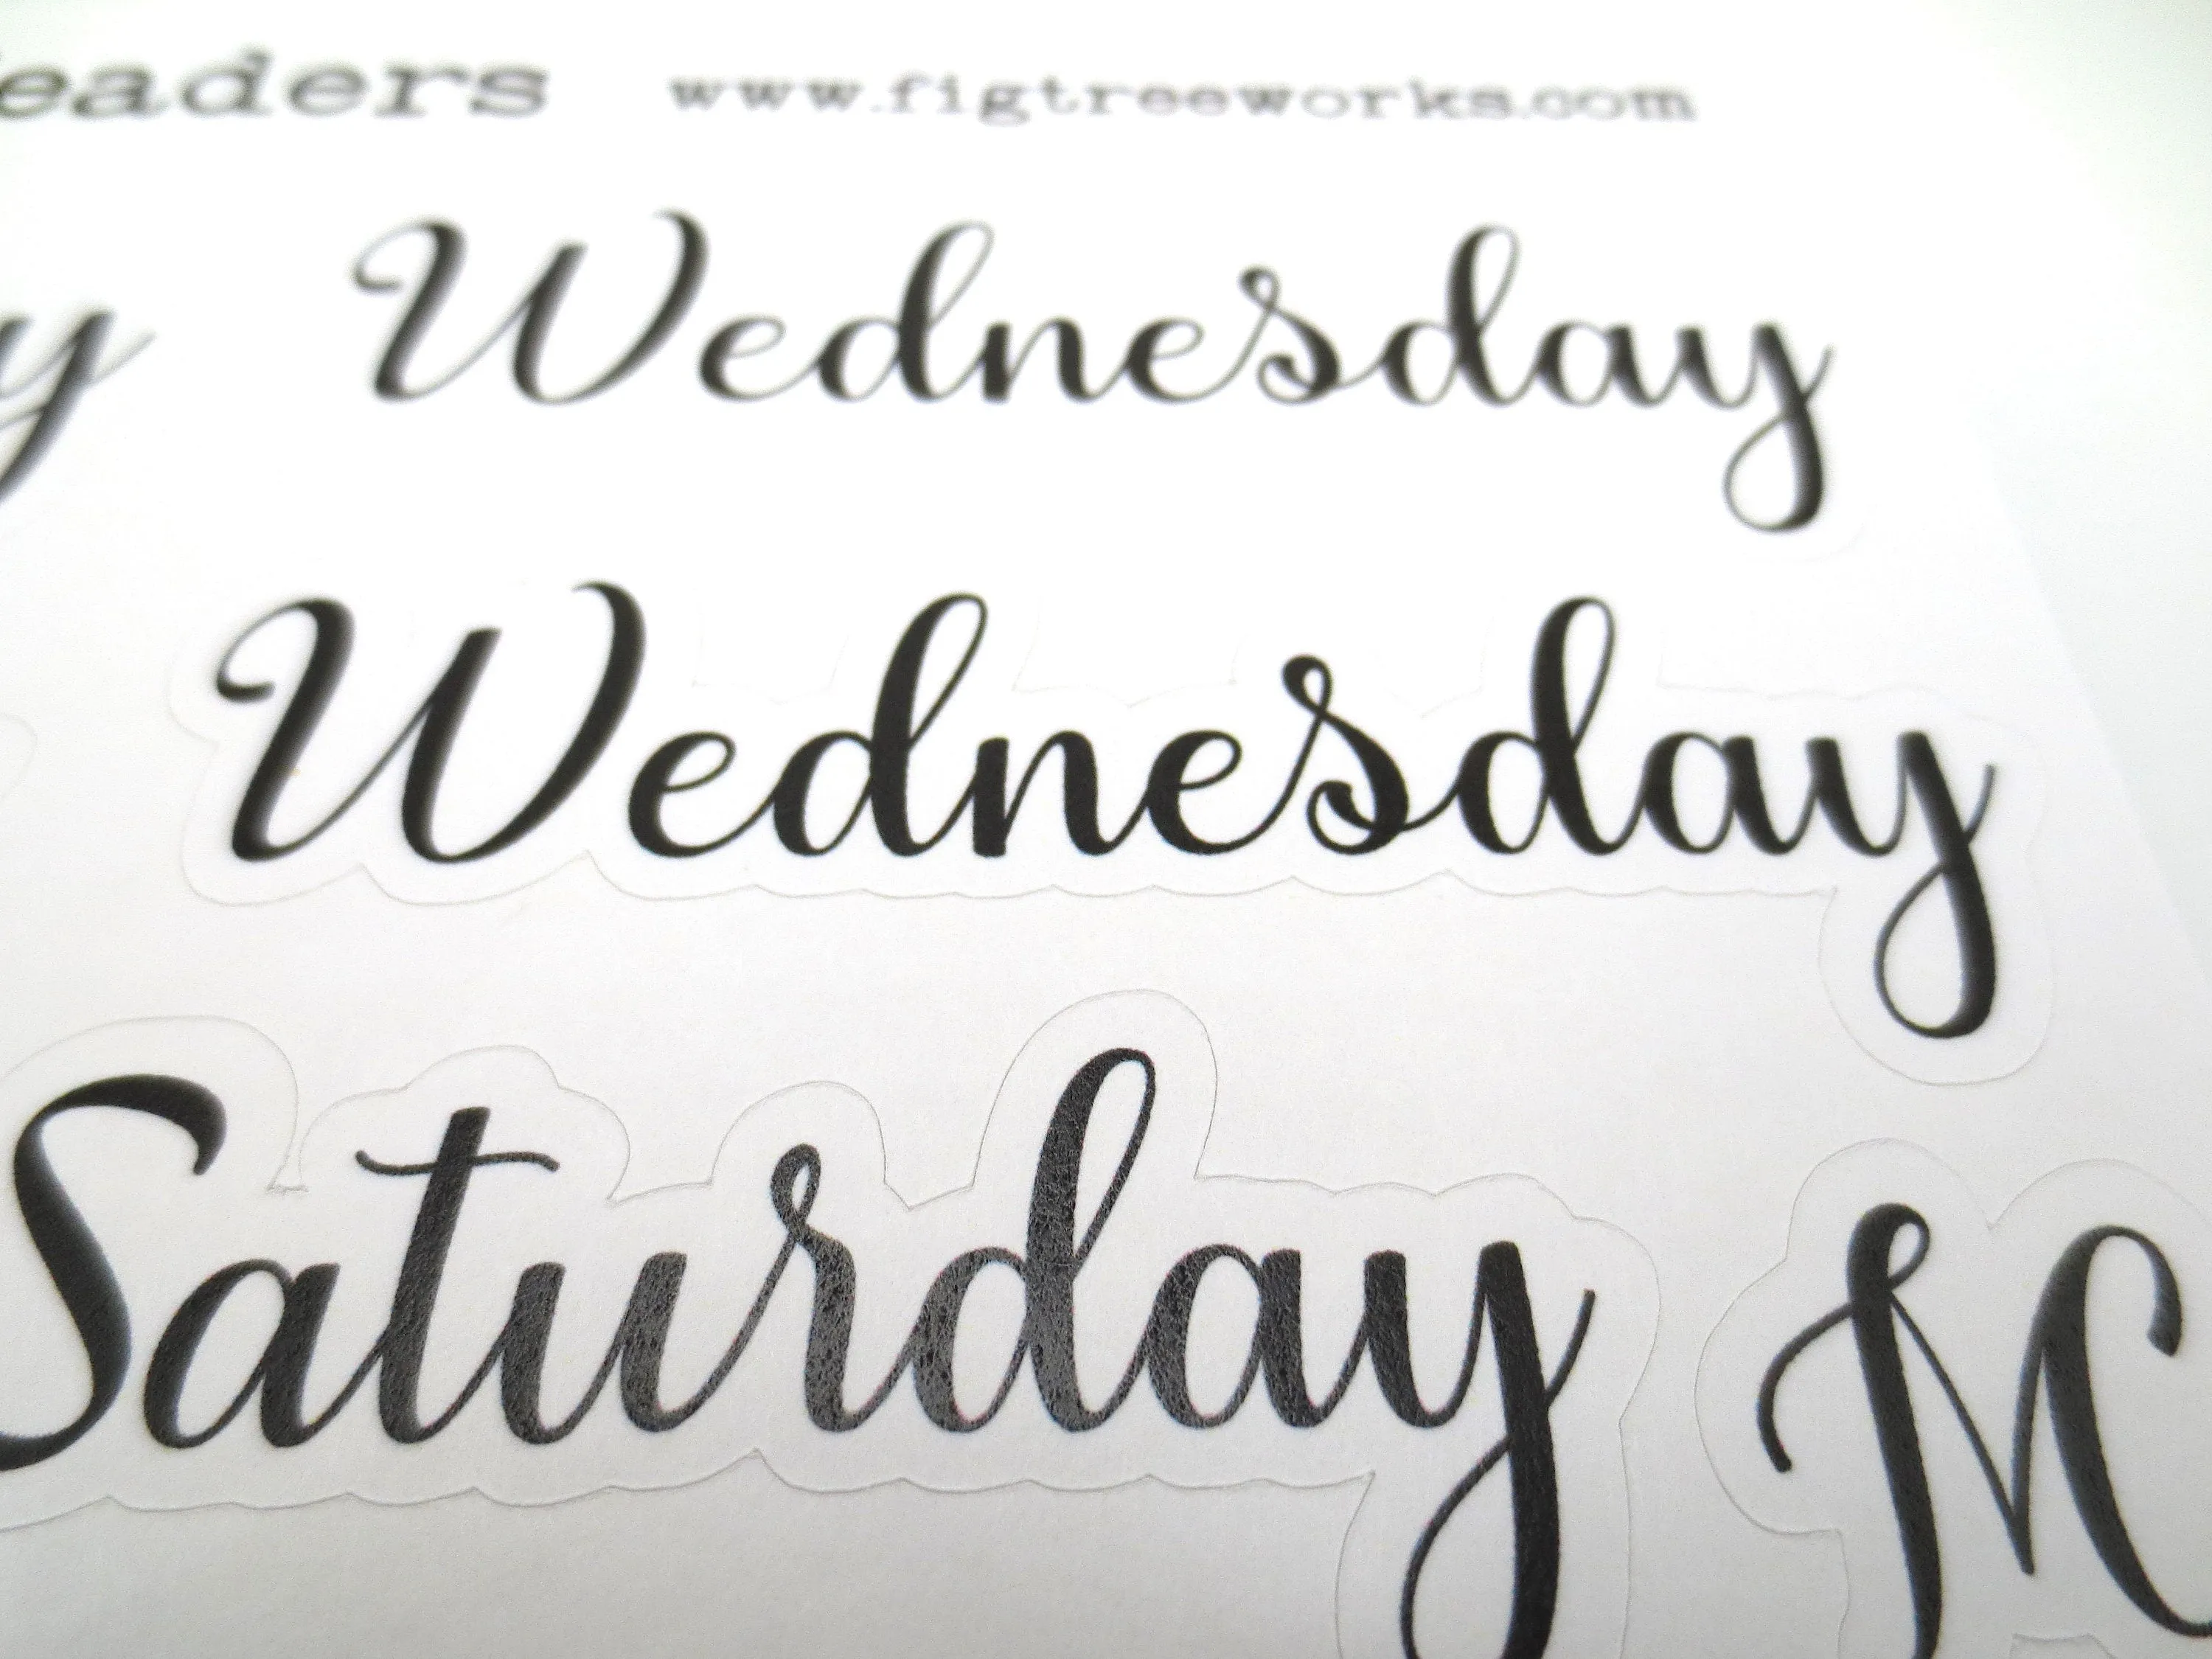 eaders www.figtreeworks.com
y Wednesday
Wednesday
Saturday M